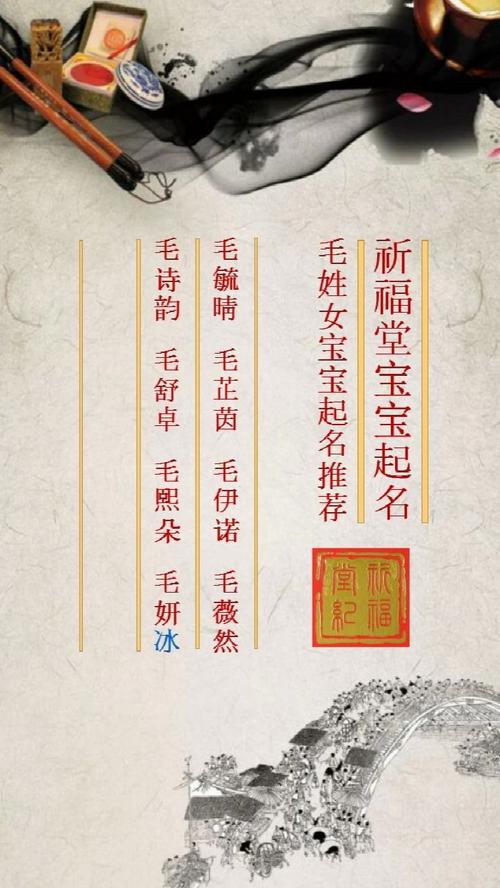 祈福堂宝宝起名
毛姓女宝宝起名推荐
毛毓晴 毛芷茵 毛伊诺 毛薇然
毛诗韵 毛舒卓 毛熙朵 毛妍冰
祈福
堂紀